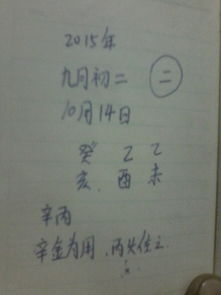 2015年
九月初二 二
10月14日
癸 乙 乙
亥 酉 未
辛丙
辛金为用,丙火佐之.